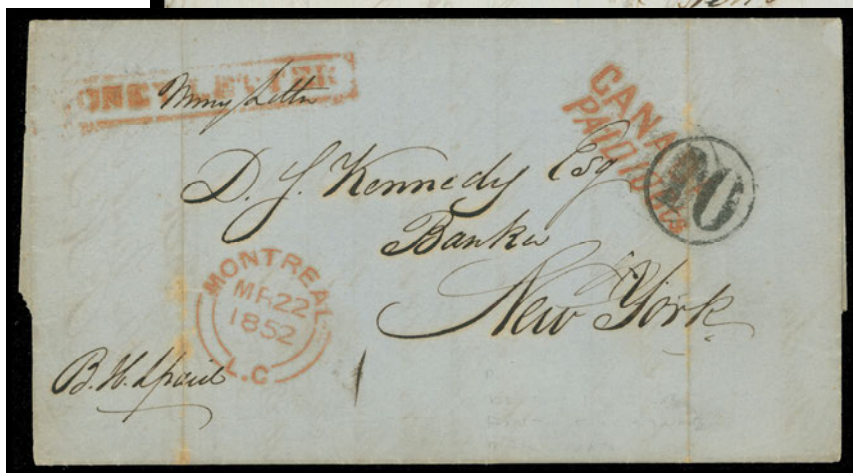 MONEY-LETTER
Money Letter
CANADA
PAID 10 Cts
10
D. J. Kennedy Esq
Banker
New York
MONTREAL
MR 22
1852
L.C
paid